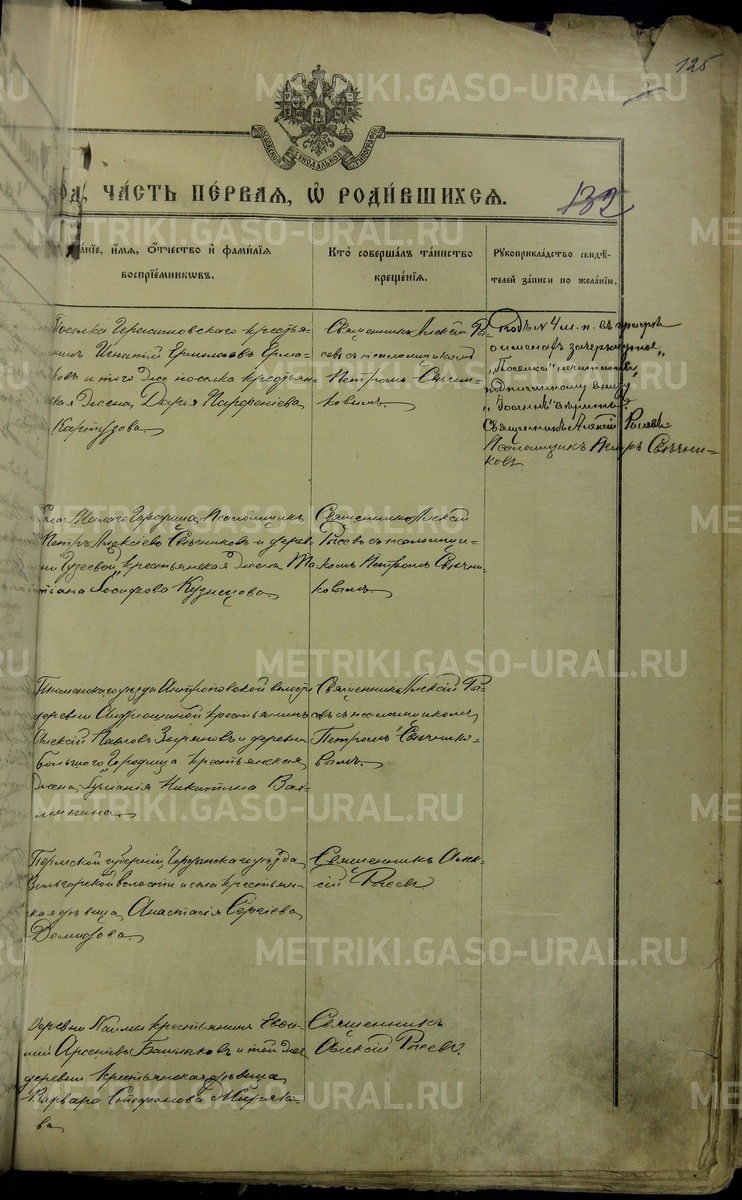 125
МОСКОВСКОЙ СѴНОДАЛЬНОЙ ТИПОГРАФІИ
ГОДА, ЧА́СТЬ ПЕ́РВАЯ, Ѡ҆ РОДИ́ВШИХСЯ.
132
ЗВАНІЕ, И҆́МЯ, Ѻ҆́ТЧЕСТВО И҆ ФАМИ́ЛІЯ
ВОСПРІЕ́МНИКОВЪ.
КТО̀ СОВЕРША́ЛЪ ТА́ИНСТВО
КРЕЩЕ́НІЯ.
РꙊКОПРИКЛА́ДСТВО СВИДѢ́-
ТЕЛЕЙ ЗА́ПИСИ ПО ЖЕЛА́НІЮ.
Поселка Герасимовскаго крестья-
нинъ Игнатій Ермолаевъ Ерма-
ковъ и того же поселка крестьян-
ская жена Дарія Парфеніева
Картузова.
Священникъ Алексій Ры-
севъ съ псаломщикомъ
Петромъ Свѣчни-
ковымъ.
Подъ № 4 м. п. въ графѣ
зачеркнутое
"Поселка"
"Іоаннъ" вѣрить.
Священникъ Алексій Рысевъ
Псаломщикъ Петръ Свѣчни-
ковъ
Села Малаго Городища Псаломщикъ
Петръ Алексіевъ Свѣчниковъ и дерев-
ни крестьянская жена Та-
тіана Іосифова Кузнецова.
Священникъ Алексій
Рысевъ съ псаломщи-
комъ Петромъ Свѣчни-
ковымъ.
Тюменскаго уѣзда Антроповской волости
деревни Андрюшиной крестьянинъ
Алексій Павловъ Зыряновъ и деревни
Большаго Городища крестьянская
жена Никитина Вах-
Священникъ Алексій Ры-
севъ съ псаломщикомъ
Петромъ Свѣчнико-
вымъ.
Пермской губерніи, Чердынскаго уѣзда
Вильгортской волости и села крестьян-
ская дѣвица Анастасія Сергіева
Демидова.
Священникъ Алек-
сій Рысевъ
Деревни Наимы крестьянинъ Евѳи-
мій Арсеніевъ Башлыковъ и той же
деревни крестьянская дѣвица
Варвара Стефанова
ва
Священникъ
Алексій Рысевъ.
METRIKI.GASO-URAL.RU